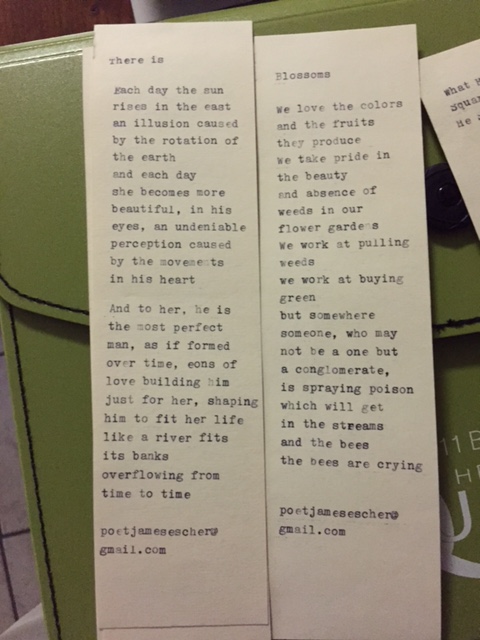 There is
Each day the sun
rises in the east
an illusion caused
by the rotation of
the earth
and each day
she becomes more
beautiful, in his
eyes, an undeniable
perception caused
by the movements
in his heart
And to her, he is
the most perfect
man, as if formed
over time, eons of
love building him
just for her, shaping
him to fit her life
like a river fits
its banks
overflowing from
time to time
poetjamesescher@
gmail.com
Blossoms
We love the colors
and the fruits
they produce
We take pride in
the beauty
and absence of
weeds in our
flower gardens
We work at pulling
weeds
we work at buying
green
but somewhere
someone, who may
not be a one but
a conglomerate,
is spraying poison
which will get
in the streams
and the bees
the bees are crying
poetjamesescher@
gmail.com
What
Squar
He
11 B
H
U